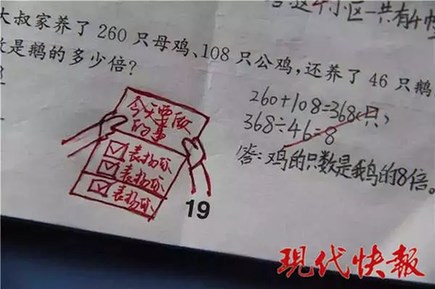 这4小区一共有4幢
大叔家养了260只母鸡、108只公鸡,还养了46只鹅
数是鹅的多少倍?
260+108=368(只)
368÷46=8
答:鸡的只数是鹅的8倍。
今天要做
的事
表扬你
表扬你
表扬你
19
现代快報